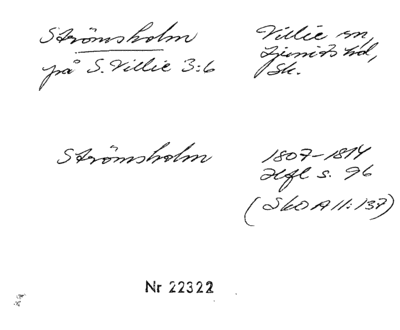 Strömsholm
på S. Villie 3:6
Villie sn,
Ljunits hd,
Sk.
Strömsholm
1807-1814
Hfl s. 96
(SkO A II:137)
Nr 22322